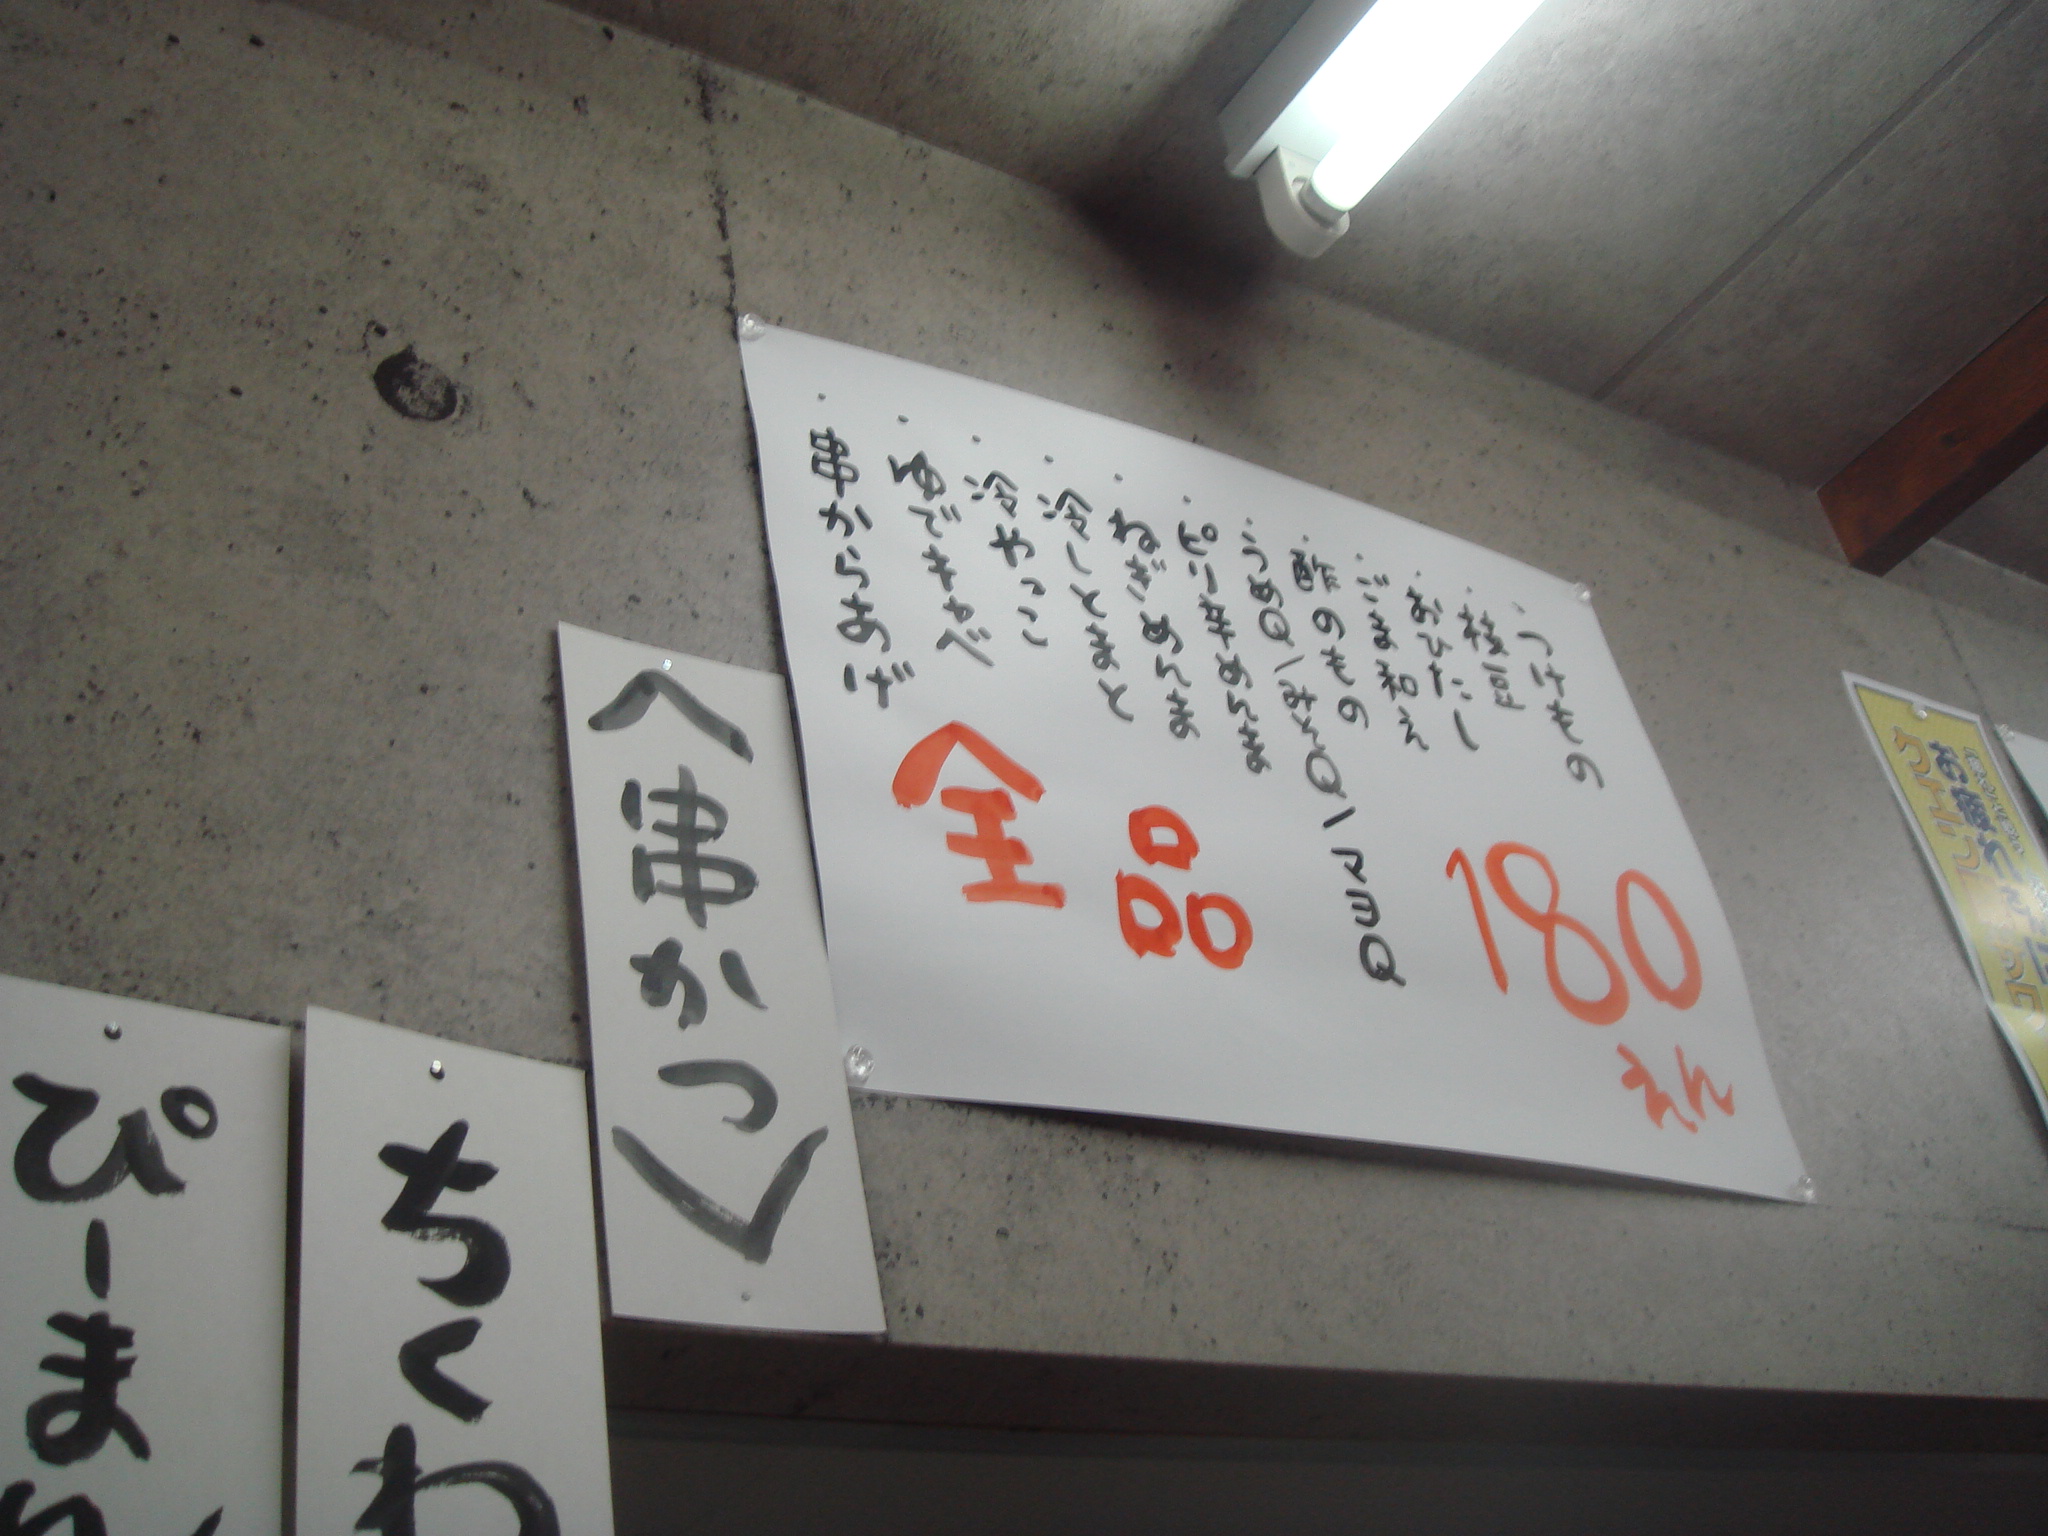 ・つけもの
・枝豆
・おひたし
・ごま和え
・酢のもの
・うめQ\みそQ\マヨQ
・ピリ辛めんま
・ねぎめんま
・冷しとまと
・冷やっこ
・ゆでキャベ
・串からあげ
全品180えん
〈串かつ〉
ちくわ
ぴーまん